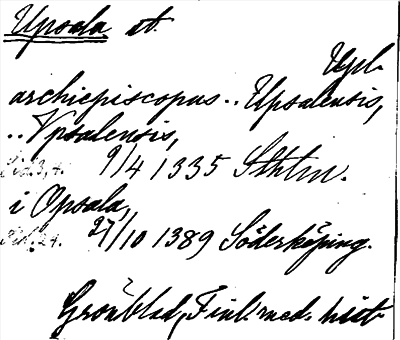 Upsala st.
Upl.
archiepiscopus.. Upsalensis,
..Vpsalensis,
Sid. 3, 4. 9/4 1335 Sthlm.
i Opsala,
Sid. 24. 27/10 1389 Söderköping.
Grönblad, Finl. med. hist